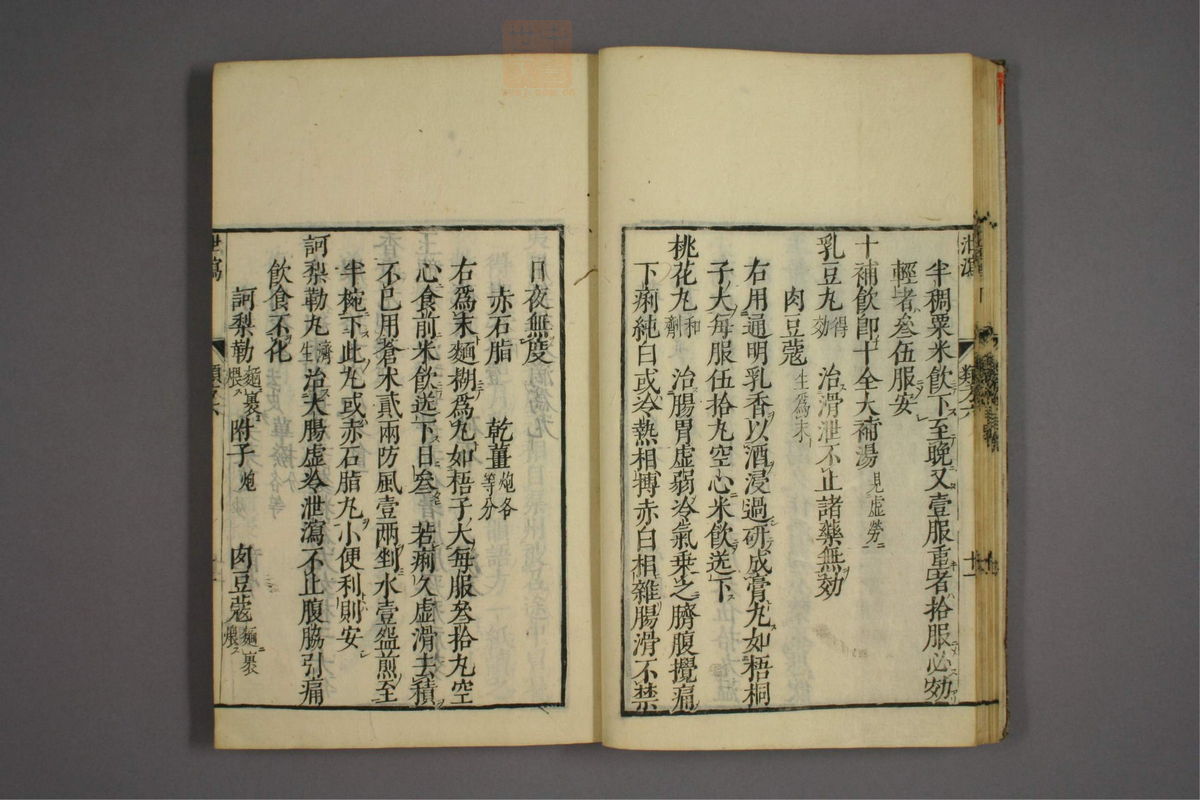 半稠粟米飲下至晩又壹服重者拾服必効
輕者叁伍服安
十補飲即十全大補湯見虛勞
乳豆丸得効 治滑泄不止諸藥無効
肉豆蔻生爲末
右用通明乳香以酒浸過研成膏丸如梧桐
子大每服伍拾丸空心米飲送下
桃花丸和劑 治腸胃虛弱冷氣乗之臍腹攪痛
下痢純白或冷熱相搏赤白相雜腸滑不禁
日夜無度
赤石脂 乾薑炮各等分
右爲末麵糊爲丸如梧子大每服叁拾丸空
心食前米飲送下日叁 若痢久虛滑去積
不已用蒼朮貳兩防風壹兩剉水壹盌煎至
半椀下此丸或赤石脂丸小便利則安
訶梨勒丸濟生 治大腸虛冷泄瀉不止腹脇引痛
飲食不化
訶梨勒麵裹煨 附子炮 肉豆蔻麵裹煨